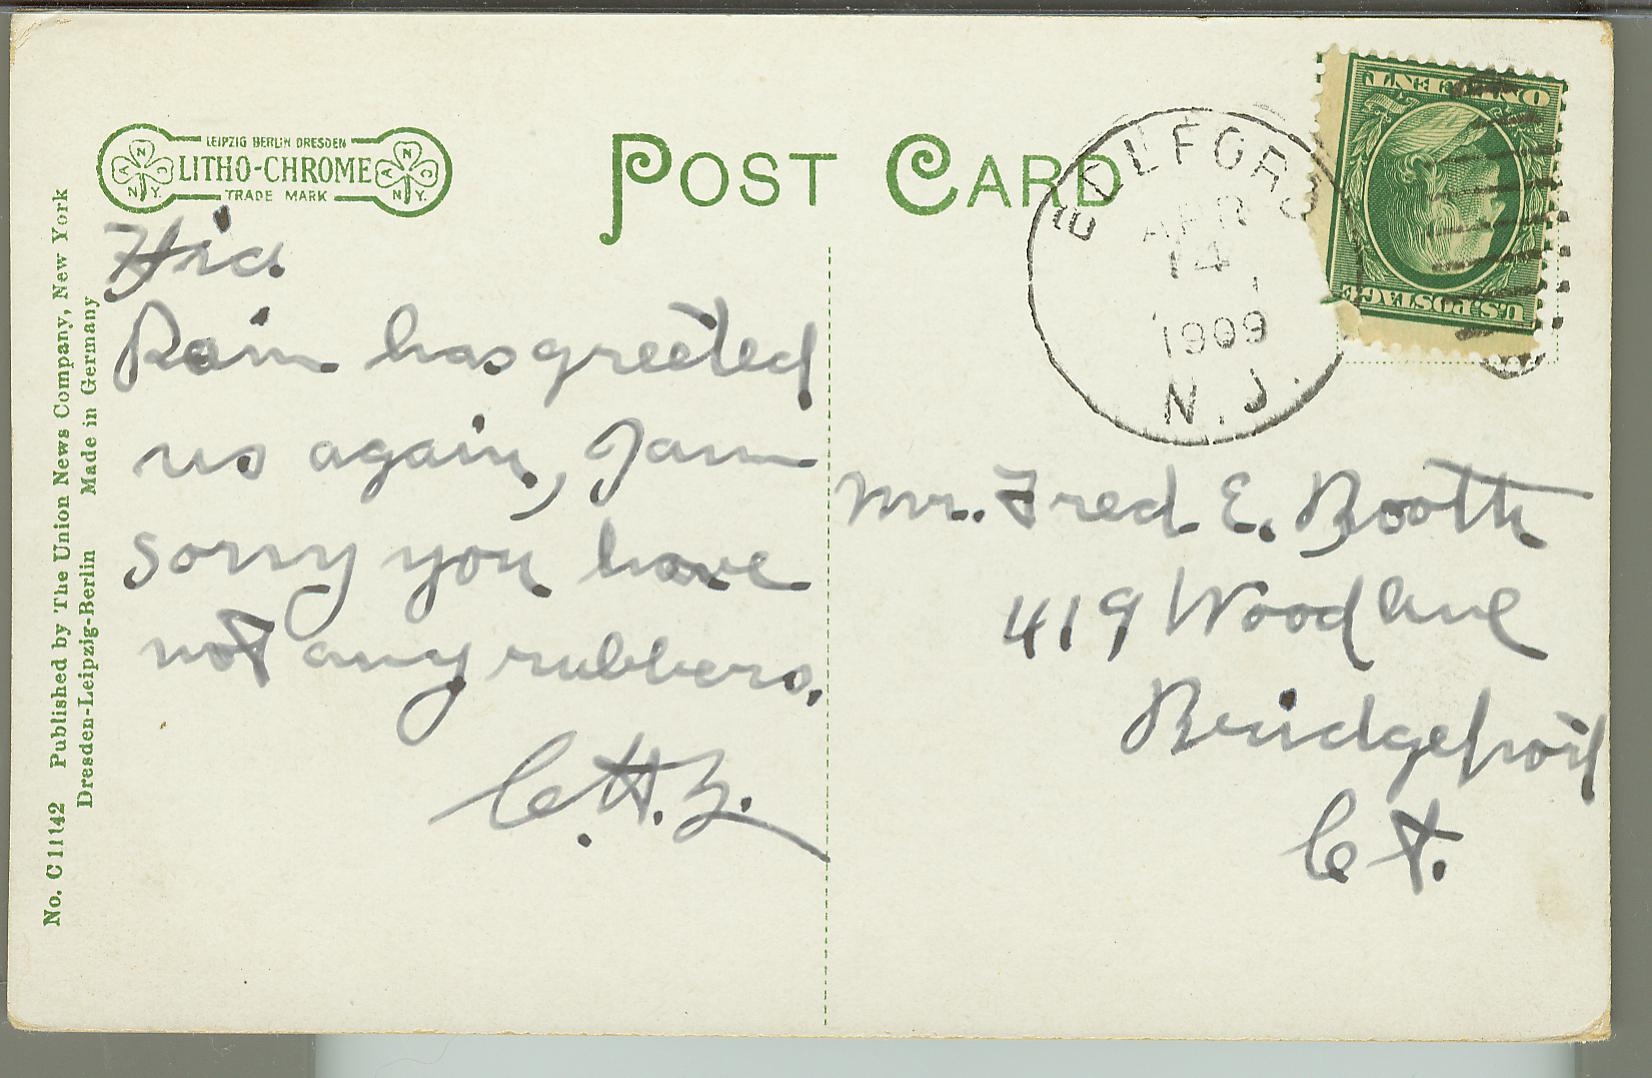 LEIPZIG BERLIN DRESDEN
LITHO-CHROME
TRADE MARK
N.Y.
N.Y.
POST CARD
APR
14
1909
N.J.
ONE CENT
U.S. POSTAGE
No. C 11142 Published by The Union News Company, New York
Dresden-Leipzig-Berlin Made in Germany
Rain has greeted
us again, I am
sorry you have
not any rubbers.
Mr. Fred E. Booth
419 Wood Ave
Bridgeport
Ct.